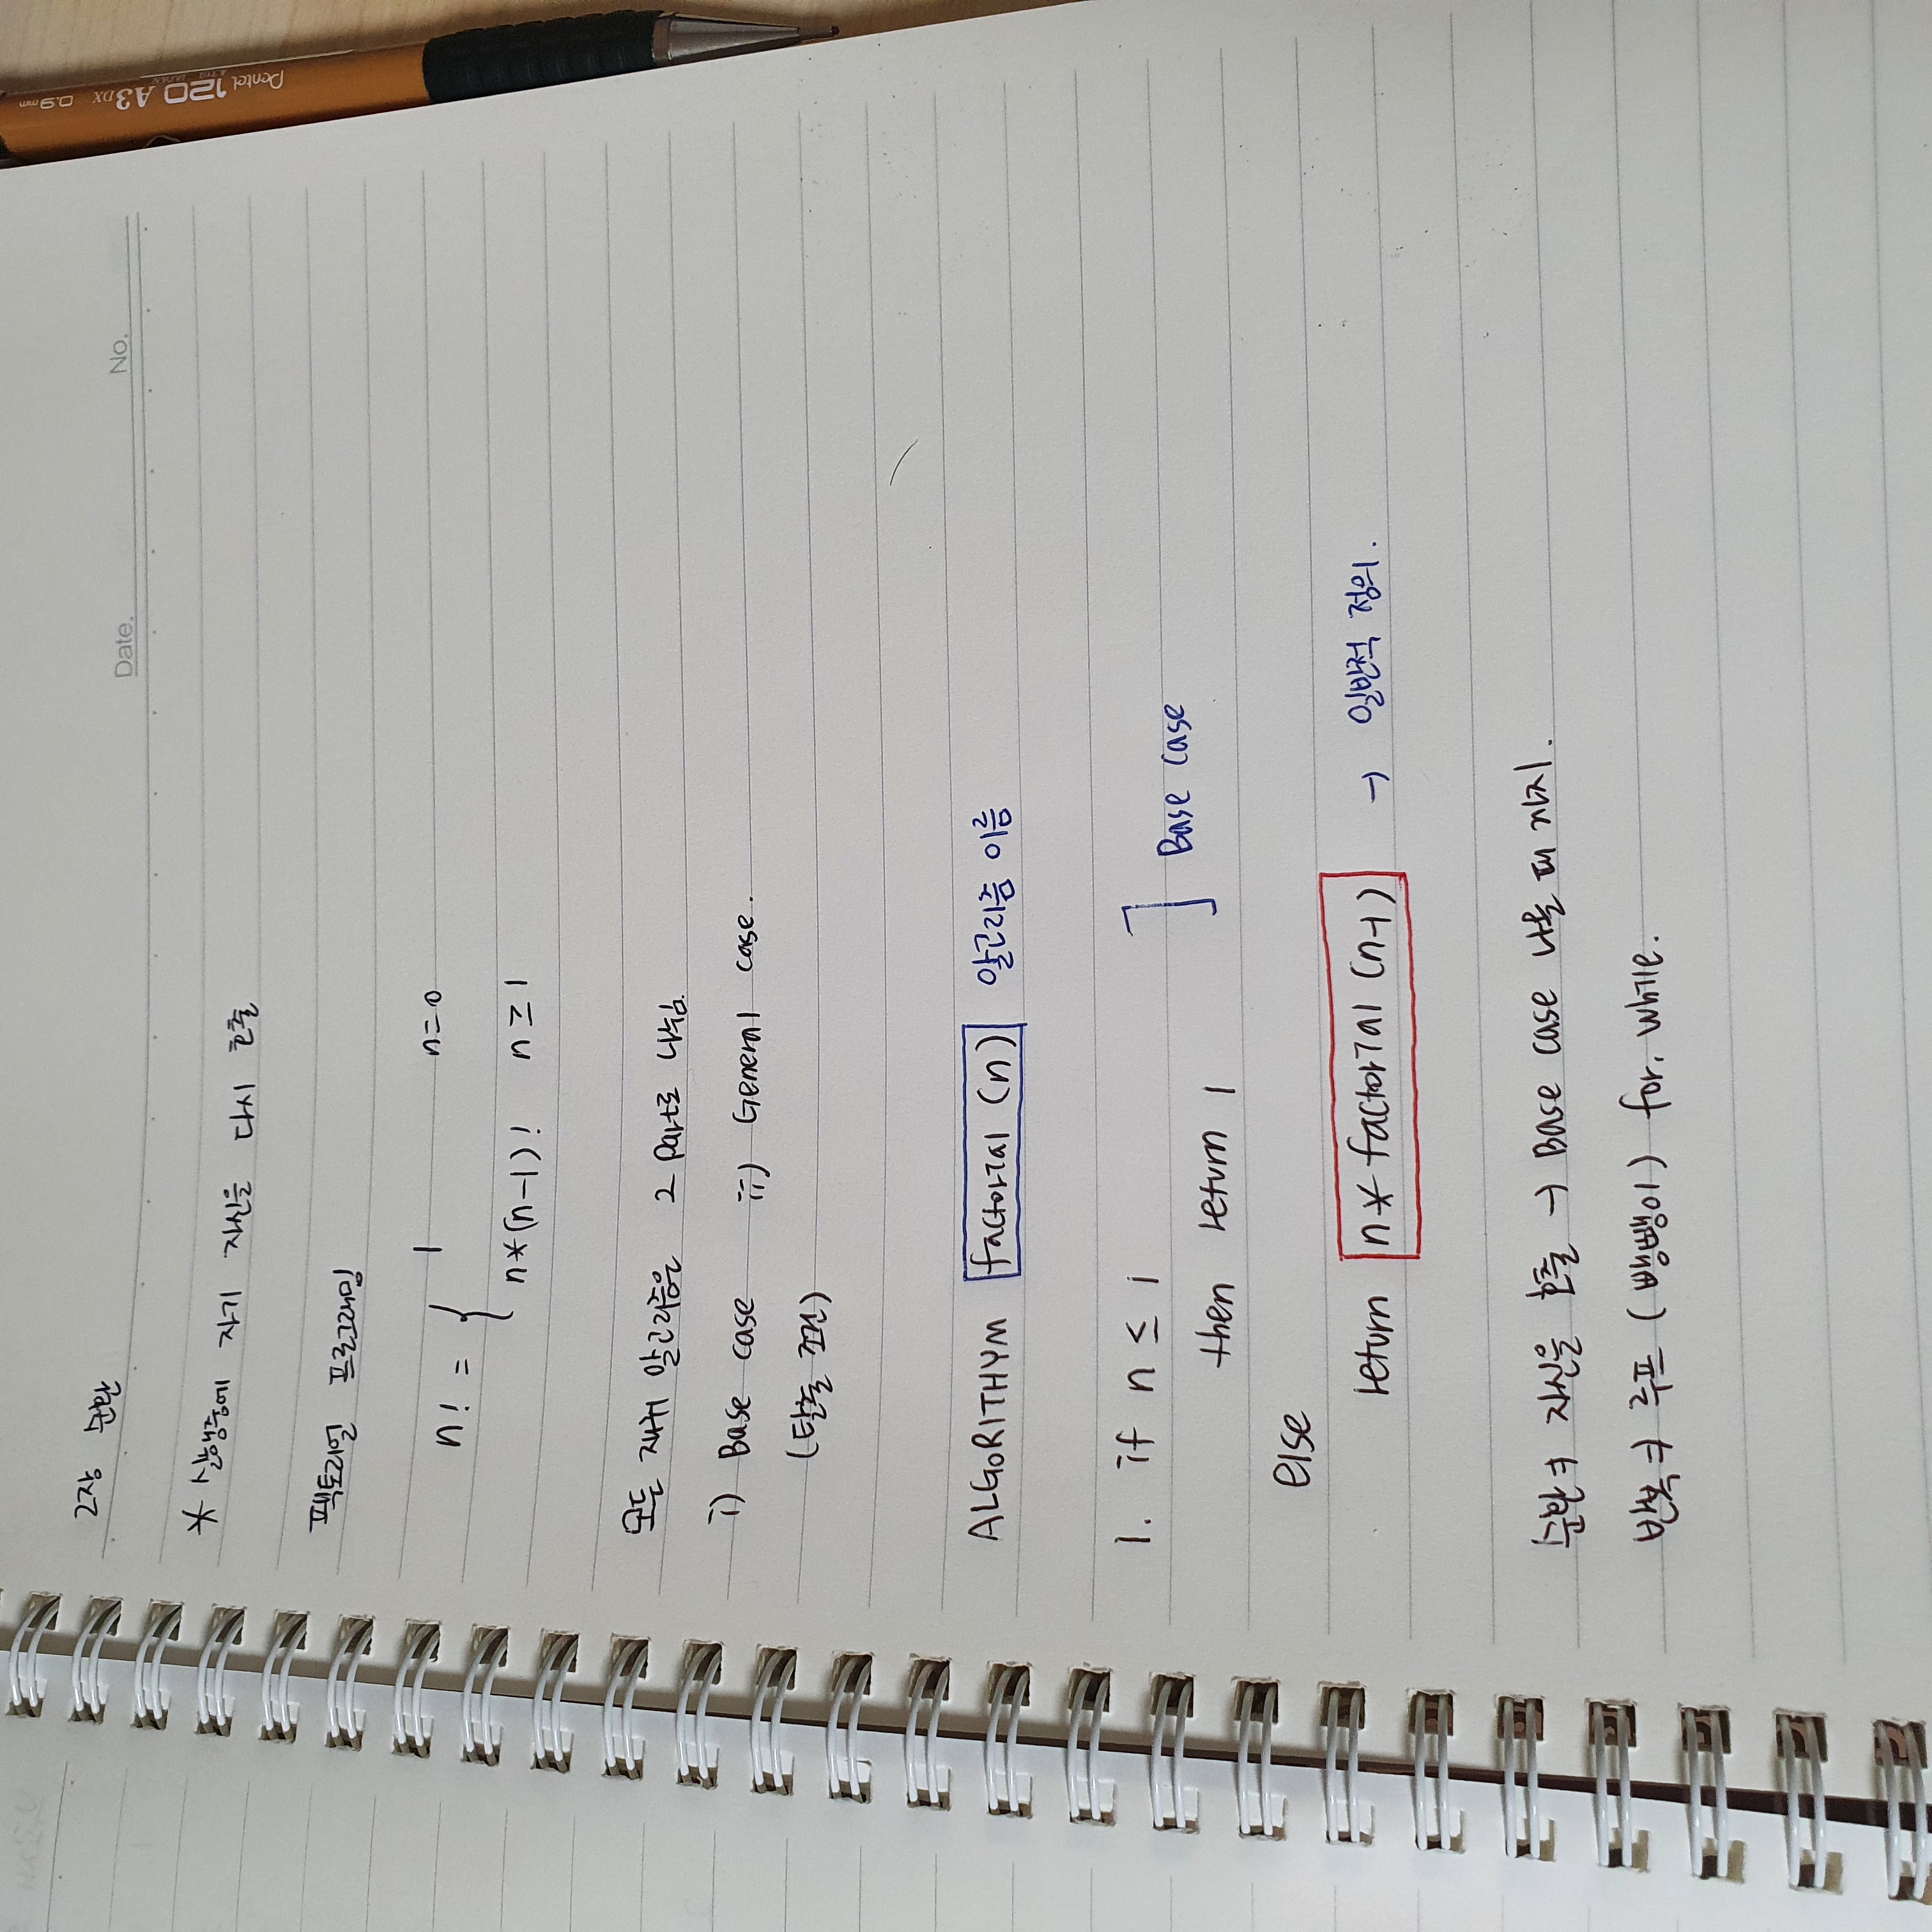 2장 순환
Date. No.
* 실행중에 자기 자신을 다시 호출
팩토리얼 프로그래밍
1 n=0
n! = {
n*(n-1)! n≥1
모든 재귀 알고리즘은 2 part로 나뉨.
i) Base case ii) General case.
(탈출 조건)
ALGORITHYM factorial (n) 알고리즘 이름
1. if n ≤ 1
then return 1 ] Base case
else
return n* factorial (n-1) → 일반적 정의.
순환 ⇒ 자신을 호출 → Base case 나올 때 까지.
반복 ⇒ 루프 (뺑뺑이) for. while.
Pentel 120 A3DX 0.9mm